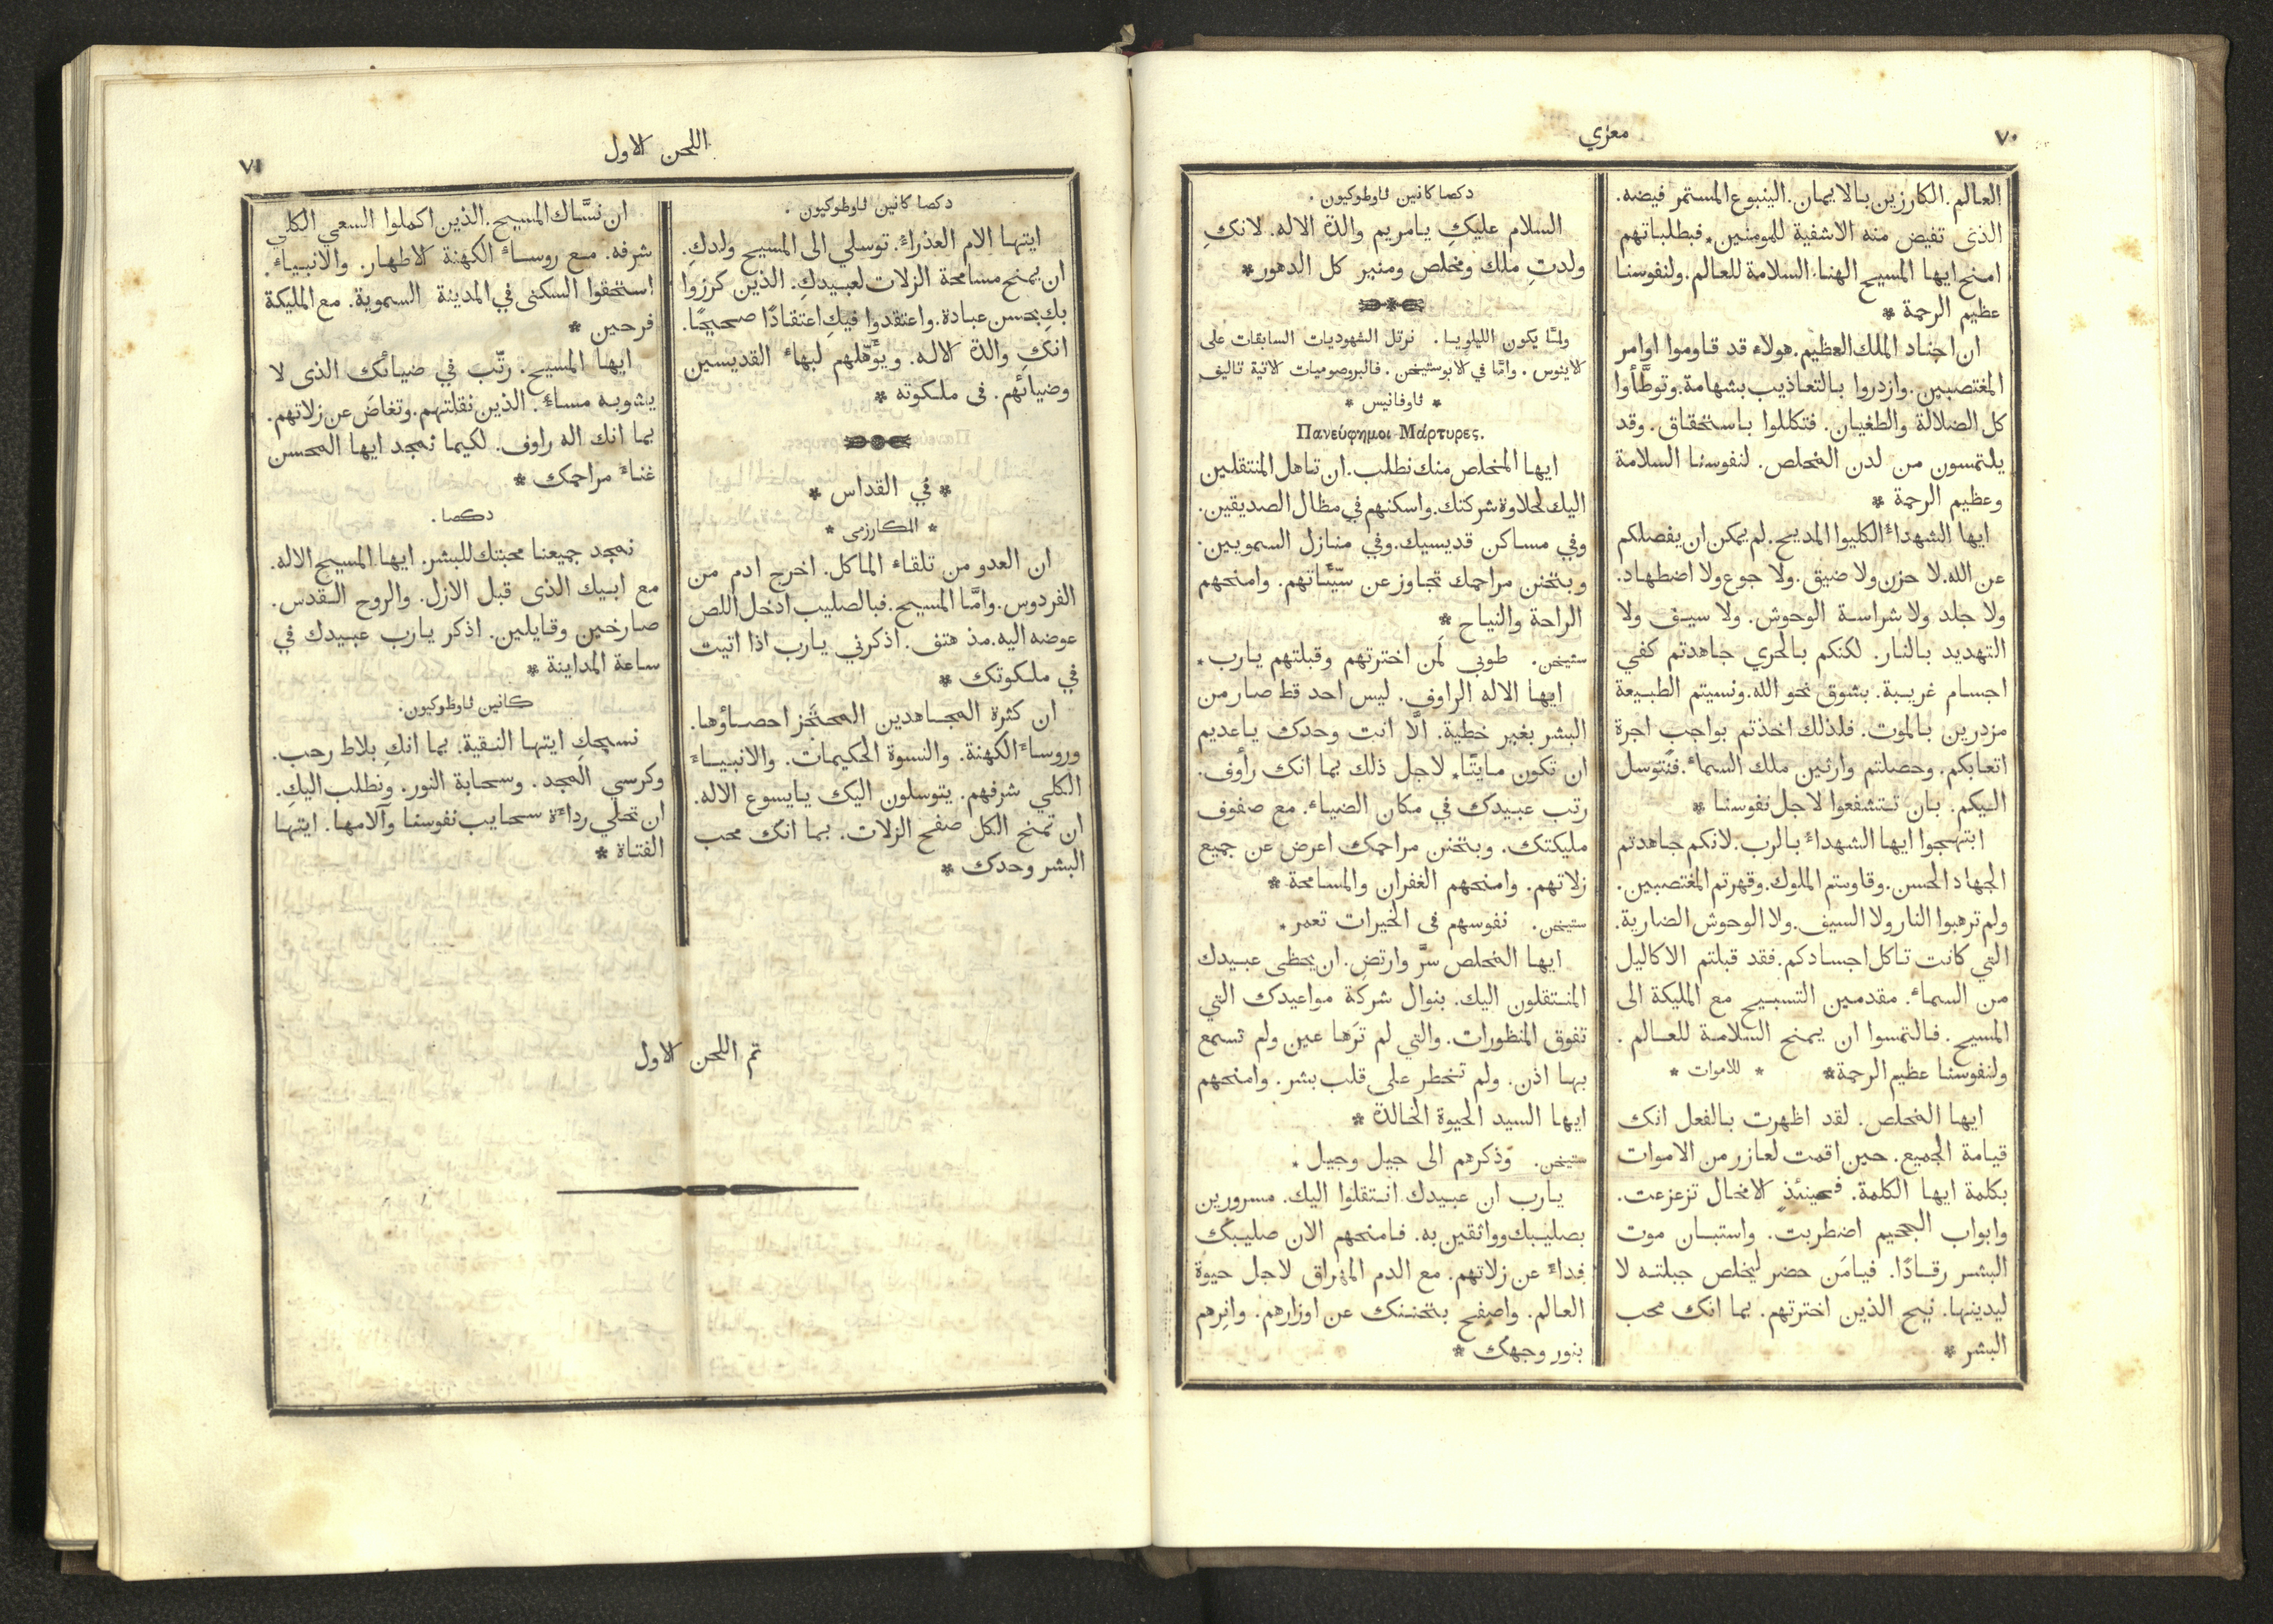 ٧٠
معزي
العالم. الكارزين بالايمان. الينبوع المستمر فيضه.
الذى تفيض منه الاشفية للمومنين٭ فبطلباتهم
امنح ايها المسيح الهنا. السلامة للعالم. ولنفوسنا
عظيم الرحمة ٭
ان اجناد الملك العظيم. هولاء قد قاوموا اوامر
المغتصبين. وازدروا بالتعاذيب بشهامة. وتوطَّأوا
كل الضلالة والطغيان. فتكللوا باستحقاق. وقد
يلتمسون من لدن المخلص. لنفوسنا السلامة
وعظيم الرحمة ٭
ايها الشهداء الكليوا المديح. لم يمكن ان يفصلكم
عن الله. لا حزن ولا ضيق. ولا جوع ولا اضطهاد.
ولا جلد ولا شراسة الوحوش. ولا سيف ولا
التهديد بالنار. لكنكم بالحري جاهدتم كفي
اجسام غريبة. بشوق نحو الله. ونسيتم الطبيعة
مزدرين بالموت. فلذلك اخذتم بواجب اجرة
اتعابكم. وحصلتم وارثين ملك السماء. فنتوسل
اليكم. بان تتشفعوا لاجل نفوسنا ٭
ابتهجوا ايها الشهداء بالرب. لانكم جاهدتم
الجهاد الحسن. وقاوستم الملوك. وقهرتم المغتصبين.
ولم ترهبوا النار ولا السيف. ولا الوحوش الضارية.
التي كانت تاكل اجسادكم. فقد قبلتم الاكاليل
من السماء. مقدمين التسبيح مع المليكة الى
المسيح. فالتمسوا ان يمنح السلامة للعالم.
ولنفوسنا عظيم الرحمة٭ ٭ للاموات ٭
ايها المخلص. لقد اظهرت بالفعل انك
قيامة الجميع. حين اقمت لعازر من الاموات
بكلمة ايها الكلمة. فحينئذٍ الامخال تزعزعت.
وابواب الجحيم اضطربت. واستبان موت
البشر رقادًا. فيامَن حضر ليخلص جبلته لا
ليدينها. نيح الذين اخترتهم. بما انك محب
البشر ٭
دكصا كانين ثاوطوكيون.
السلام عليكِ يا مريم والدة الاله. لانكِ
ولدتِ ملك ومخلص ومنير كل الدهور٭
ولمَّا يكون الليلويا. نرتل الشهوديات السابقات على
الاينوس. وامَّا في الابوستيخن. فالبروصوميات الاتية تاليف
٭ ثاوفانيس ٭
Πανεύφημοι Μάρτυρες.
ايها المخلص منك نطلب. ان تاهل المنتقلين
اليك لحلاوة شركتك. واسكنهم في مظال الصديقين.
وفي مساكن قديسيك. وفي منازل السمويين.
وبتحنن مراحمك تجاوز عن سيّئاتهم. وامنحهم
الراحة والنياح ٭
ستيخن. طوبى لَمن اخترتهم وقبلتهم يارب٭
ايها الاله الراوف. ليس احد قط صار من
البشر بغير خطية. الَّا انت وحدك يا عديم
ان تكون مايتًا٭ لاجل ذلك بما انك رأوف.
رتب عبيدك في مكان الضياء. مع صفوف
مليكتك. وبتحنن مراحمك اعرض عن جميع
زلاتهم. وامنحهم الغفران والمسامحة ٭
ستيخن. نفوسهم فى الخيرات تعمر٭
ايها المخلص سرَّ وارتضِ. ان يحظى عبيدك
المنتقلون اليك. بنوال شركة مواعيدك التي
تفوق المنظورات. والتي لم تَرَها عين ولم تسمع
بها اذن. ولم تخطر على قلب بشر. وامنحهم
ايها السيد الحيوة الخالدة ٭
ستيخن. وَذكرهم الى جيل وجيل٭
يارب ان عبيدك انتقلوا اليك. مسرورين
بصليبك وواثقين به. فامنحهم الان صليبك
فداءً عن زلاتهم. مع الدم المهراق لاجل حيوة
العالم. واصفح بتحننك عن اوزارهم. وانِرهم
بنور وجهك ٭
اللحن الاول
٧١
دكصا كانين ثاوطوكيون.
ايتها الام العذراء. توسلي الى المسيح ولدكِ.
ان يمنح مسامحة الزلات لعبيدكِ. الذين كرزوا
بكِ بحسن عبادة. واعتقدوا فيكِ اعتقادًا صحيحًا.
انكِ والدة الاله. ويؤَهلهم لبهاء القديسين
وضيائهم. فى ملكوته ٭
٭ في القداس ٭
٭ المكارزمى ٭
ان العدو من تلقاء الماكل. اخرج ادم من
الفردوس. وامَّا المسيح. فبالصليب ادخل اللص
عوضه اليه. مذ هتف. اذكرني يارب اذا اتيت
في ملكوتك ٭
ان كثرة المجاهدين المحتجَز احصاؤها.
وروساء الكهنة. والنسوة الحكيمات. والانبياء
الكلي شرفهم. يتوسلون اليك يايسوع الاله.
ان تمنح الكل صفح الزلات. بما انك محب
البشر وحدك ٭
ان نسَّاك المسيح. الذين اكملوا السعي الكلي
شرفه. مع روساء الكهنة الاطهار. والانبياء.
استحقوا السكنى في المدينة السموية. مع المليكة
فرحين ٭
ايها المسيح. رتّب في ضيائك الذى لا
يشوبه مساءٌ. الذين نقلتهم. وتغاضَ عن زلاتهم.
بما انك اله راوف. لكيما نمجد ايها المحسن
غناءَ مراحمك ٭
دكصا.
نمجد جميعنا محبتك للبشر. ايها المسيح الاله.
مع ابيك الذى قبل الازل. والروح القدس.
صارخين وقايلين. اذكر يارب عبيدك في
ساعة المداينة ٭
كانين ثاوطوكيون.
نسبحكِ ايتها النقية. بما انكِ بلاط رحب.
وكرسي المجد. وسحابة النور. ونطلب اليكِ.
ان تجلي رداءة سحايب نفوسنا وآلامها. ايتها
الفتاة ٭
تم اللحن الاول